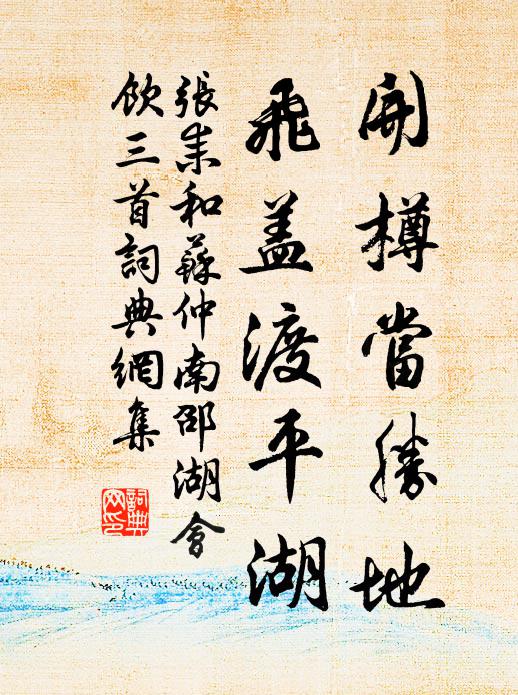 開樽當勝地
飛盖渡平湖
張耒和蘇仲南邵湖會
飲三首詞典網集
詞典網印